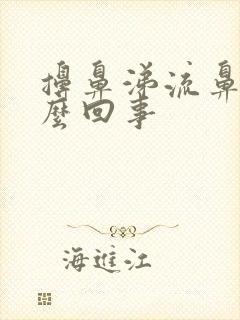 擤鼻涕流鼻
麼回事
海進江